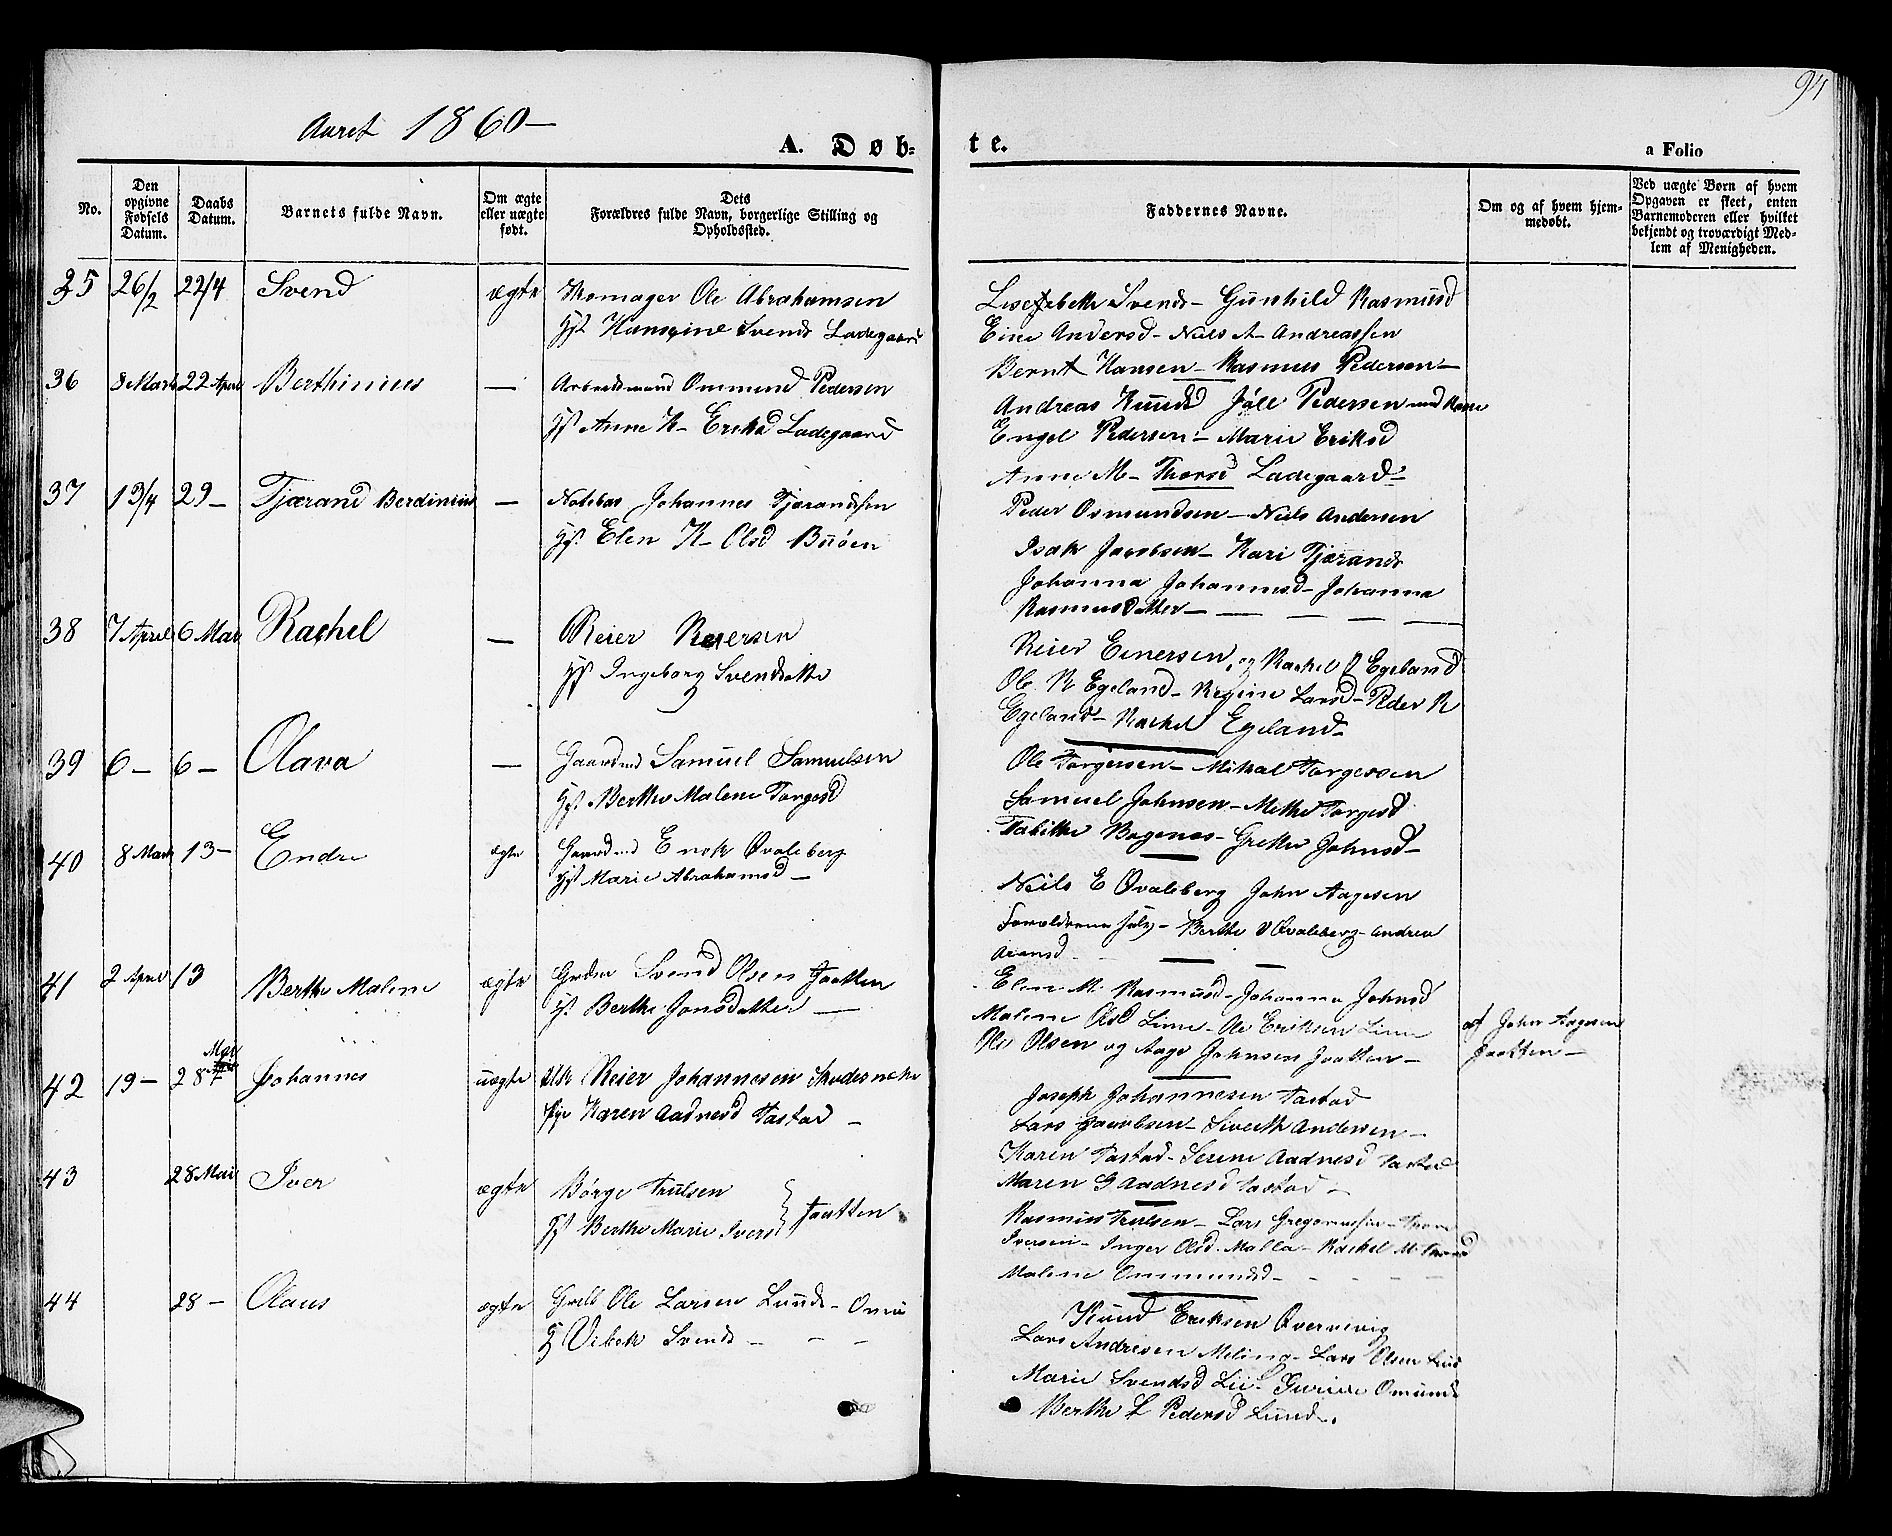 94
Aaret 1860-
A. Døb-
te.
a Folio
No.
Den opgivne Fødsels Datum.
Daabs Datum.
Barnets fulde Navn.
Om ægte eller uægte født.
Dets Forældres fulde Navn, borgerlige Stilling og Opholdssted.
Faddernes Navne.
Om og af hvem hjemmedøbt.
Ved uægte Børn af hvem Opgaven er skeet, enten Barnemoderen eller hvilket bekjendt og troværdigt Medlem af Menigheden.
35 26/2 22/4 Svend ægte Skomager Ole Abrahamsen
Hansine Svends Ladegaard
Svends- Gunhild Rasmusd
Eine Andersd- Niels A- Andreassen
Bernt Hansen- Rasmus Pedersen-
36 8 Marts 22 April Berthinius — Arbeidsmand Ommund Pedersen
Anne K- Eriksd Ladegaard
Andreas Knuds Pedersen med Kone
Engel Pedersen- Marie Eriksd
Anne M- Thorsd Ladegaard-
37 13/4 29- Tjærand Berdinius — Johannes Tjerandsen
Elen K- Olsd Buøen
Peder Osmundsen- Niels Andersen
Isak Jacobsen- Kari Tjærands
Johanna Johannesd- Johanna
Rasmusdatter-
38 7 April 6 Mai Rachel — Reier Reiersen
Ingeborg Svendsdatter
Reier Einersen, og Rachel Egeland
Ole R Egeland- Regine Larsd- Peder R
Egeland- Rachel Egeland-
39 6- 6- Olava — Gaardmd Samuel Samuelsen
Berthe Malene Torgesd
Ole Torgersen- Mikal Torgersen
Samuel Johnsen- Methe Torgesd
Tabithe Bogenes- Grethe Johnsd-
40 8 Marts 13- Endre ægte Gaardmd Enok Øvaleberg
Marie Abrahamsd-
Neils E Øvaleberg John Aagesen
Forældrene selv- Berthe Øvaleberg- Andrea
41 2 April 13 Berthe Malene ægte Svend Olsen Jaatten
Berthe Jonsdatter —
Elen M. Rasmusd- Johanna Johnsd
Malene Olsd Lime- Ole Eriksen Lime
Ole Olsen og Aage Johnsen Jaatten-
af John Aagesen
Jaatten-
42 19- 28 Mai Johannes uægte Reier Johannesen
Karen Aadnesd Tastad -
Joseph Johannesen Tastad
Lars Jacobsen- Siverth Andersen-
Karen Tastad- Serine Aadnesd Tastad
Maren G Aadnesd Tastad-
43 28 Mai Iver ægte Børge Trulsen
Berthe Marie Ivers Jaatten
Rasmus Trulsen- Lars Gregoriussen-
Iversen- Inger Olsd. Malla- Rachel M
Malene Ommundsd-
44 28- Olaus ægte Ole Larsen Lunde-
Vibek Svends -
Knud Eriksen
Lars Andresen Meling- Lars Olsen
Marie Svendsd Lie-
Berthe L Pedersd Lund-